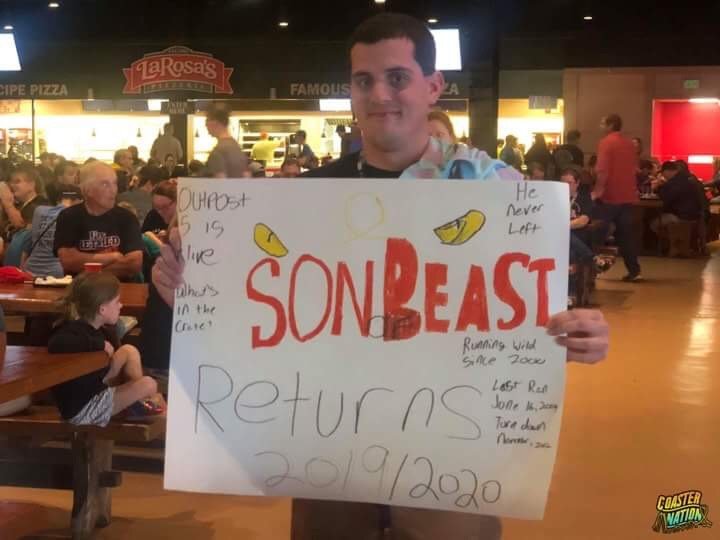 LaRosa's
PIZZERIA
CIPE PIZZA
FAMOUS
ZA
Outpost
5 is
live
what's
in the
Crate?
He
Never
Left
SON OF BEAST
Running Wild
since 2000
Returns
2019/2020
Last Ran
June 16, 2009
Tore down
RETIRED
COASTER
NATION